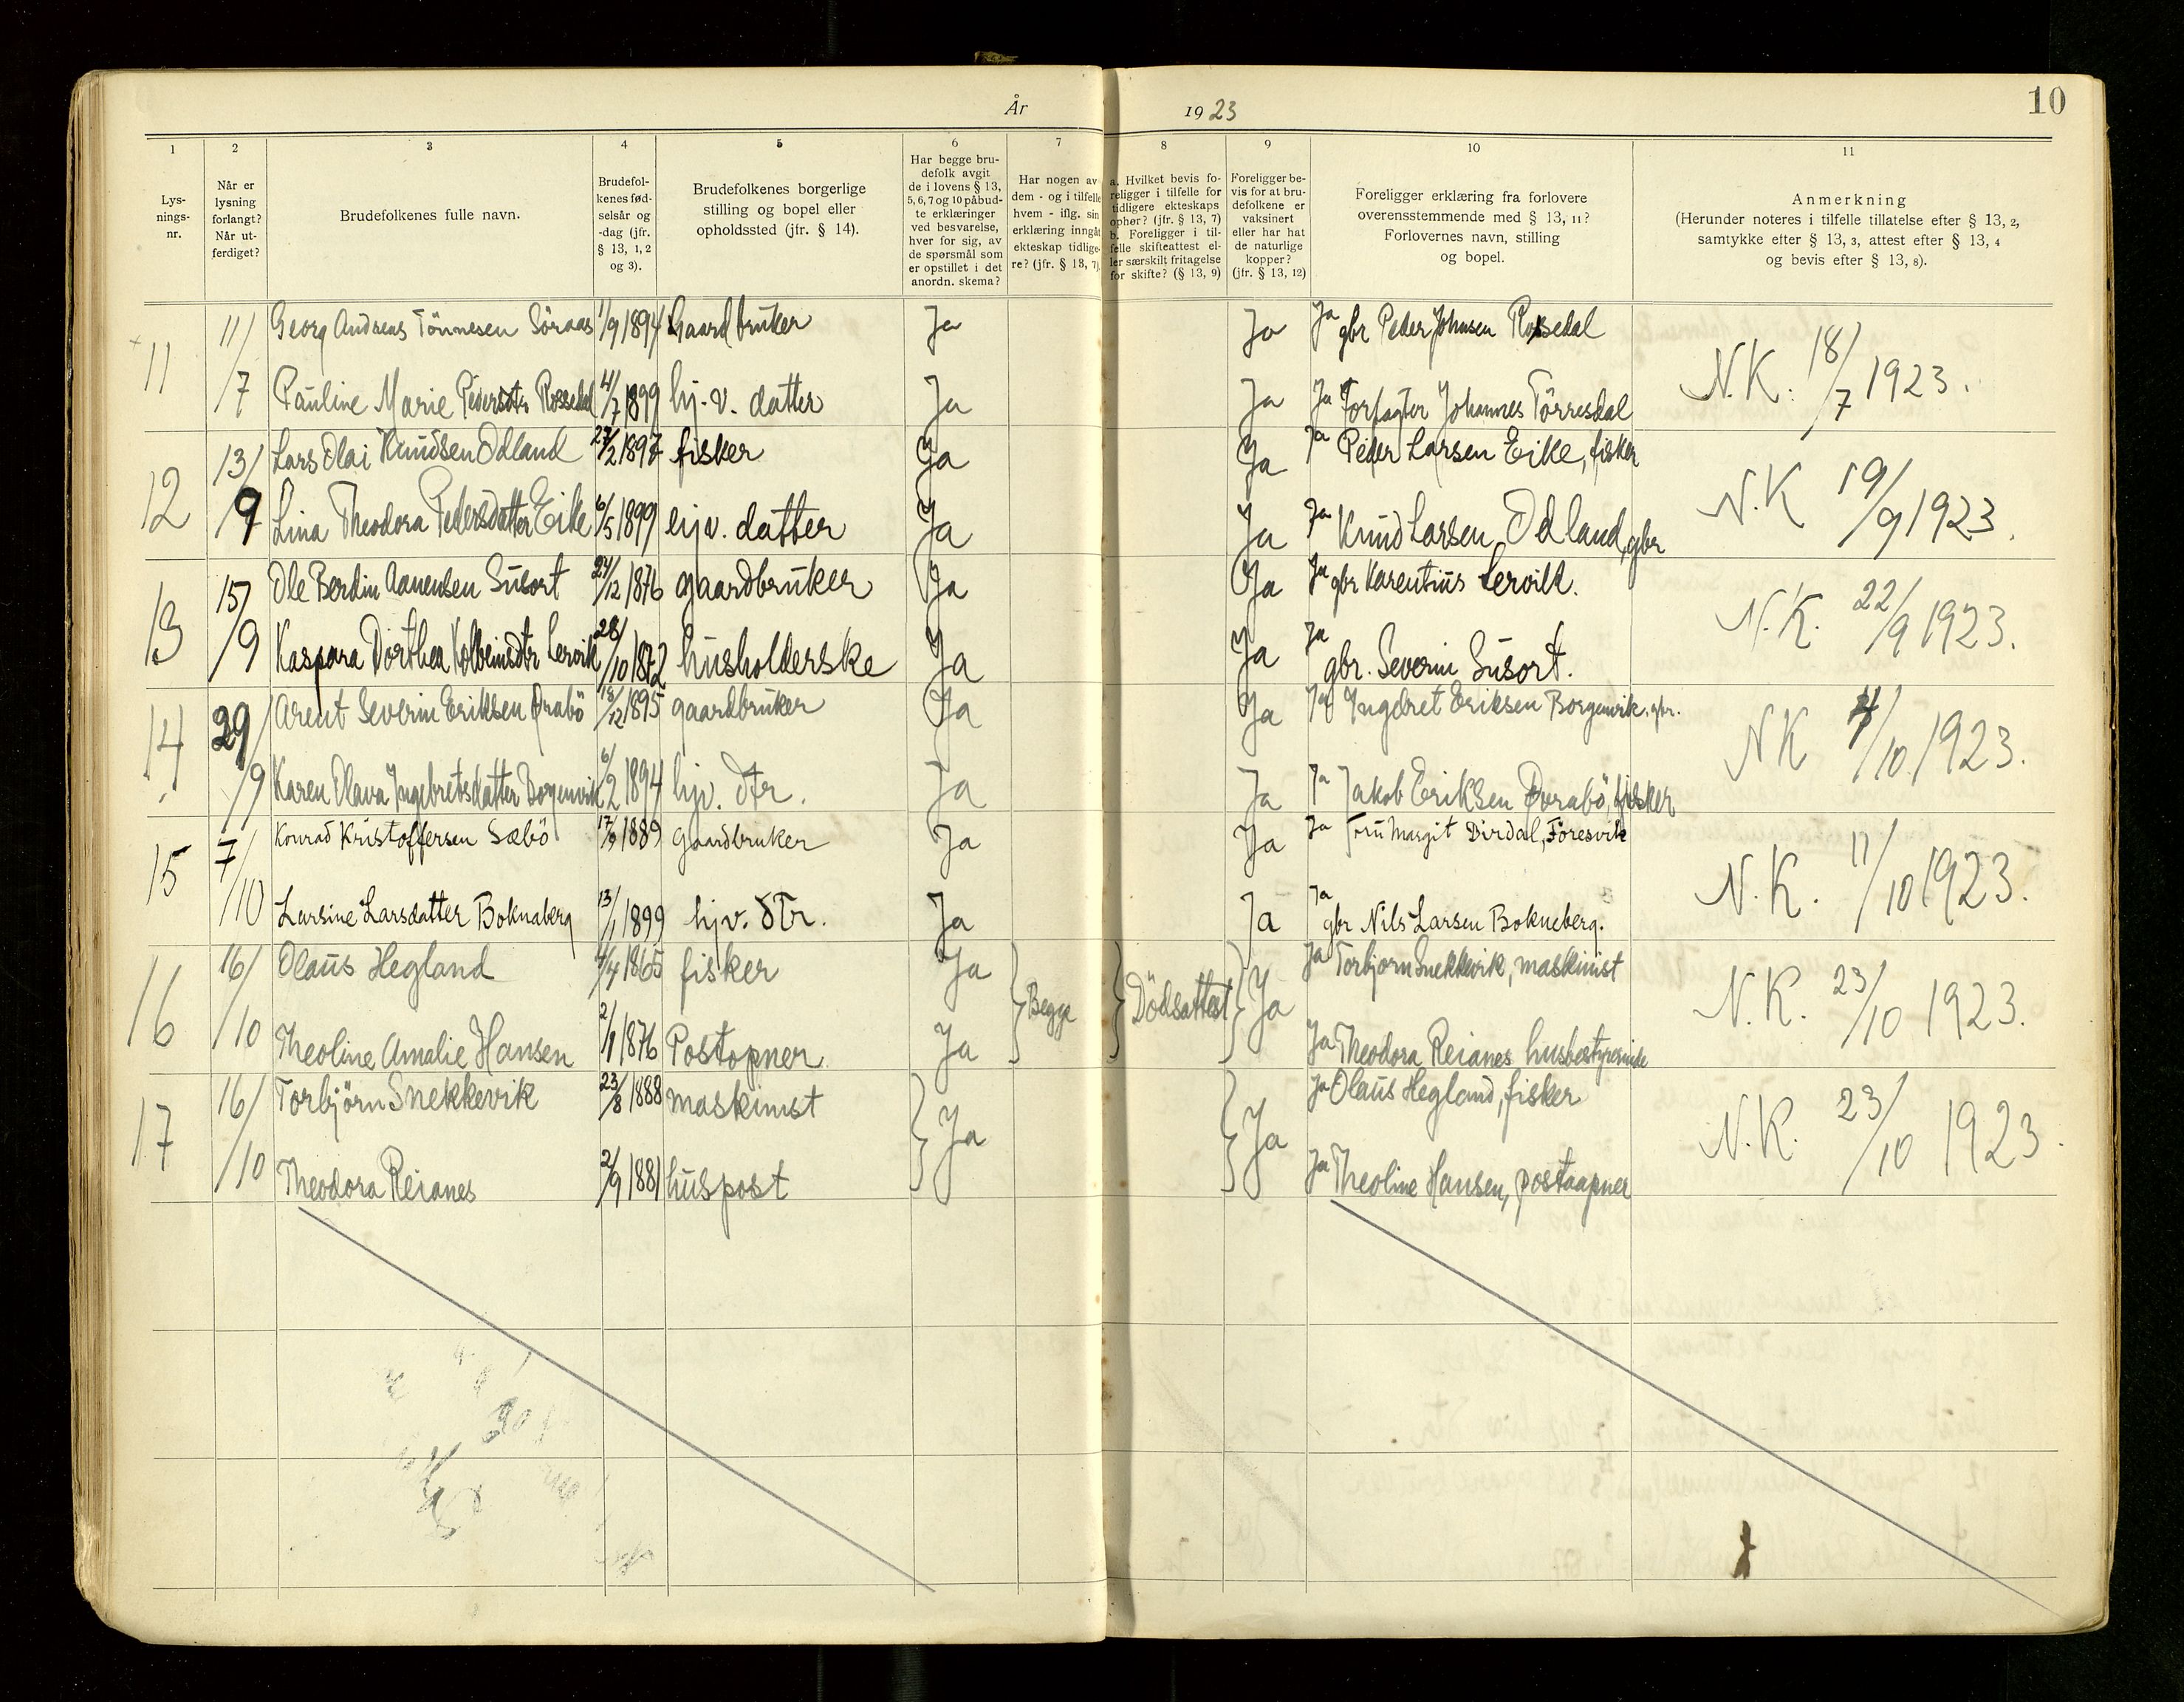 År 1923
10
1 2 3 4 5 6 7 8 9 10 11
Lys-
nings-
nr.
Når er
lysning
forlangt?
Når ut-
ferdiget?
Brudefolkenes fulle navn.
Brudefol-
kenes fød-
selsår og
-dag (jfr.
§ 13, 1, 2
og 3).
Brudefolkenes borgerlige
stilling og bopel eller
opholdssted (jfr. § 14).
Har begge bru-
defolk avgit
de i lovens § 13,
5, 6, 7 og 10 påbud-
te erklæringer
ved besvarelse,
hver for sig, av
de spørsmål som
er opstillet i det
anordn. skema?
Har nogen av
dem - og i tilfelle
hvem - iflg. sin
erklæring inngåt
ekteskap tidlige-
re? (jfr. § 13, 7)
a. Hvilket bevis fo-
religger i tilfelle for
tidligere ekteskaps
ophør? (jfr. § 13, 7)
b. Foreligger i til-
felle skifteattest el-
ler særskilt fritagelse
for skifte? (§ 13, 9)
Foreligger be-
vis for at bru-
defolkene er
vaksinert
eller har hat
de naturlige
kopper?
(jfr. § 13, 12)
Foreligger erklæring fra forlovere
overensstemmende med § 13, 11?
Forlovernes navn, stilling
og bopel.
Anmerkning
(Herunder noteres i tilfelle tillatelse efter § 13, 2,
samtykke efter § 13, 3, attest efter § 13, 4
og bevis efter § 13, 8).
11 11/7 Georg Andreas Tönnesen Söraas 1/9 1894 Gaardbruker Ja Ja Ja gbr Peder Johnsen Rossedal N.K. 18/7 1923.
Pauline Marie Pedersdtr Rossedal 4/7 1899 hj. v. datter Ja Ja Ja Forpagter Johannes Törresdal
12 13/9 Lars Olai Knudsen Odland 27/2 1897 fisker Ja Ja Ja Peder Larsen Eike, fisker N.K 19/9 1923.
Lina Theodora Pedersdatter Eike 6/5 1899 hjv. datter Ja Ja Ja Knud Larsen Odland, gbr
13 15/9 Ole Berdin Aanensen Susort 24/12 1876 gaardbruker Ja Ja Ja gbr Karentius Lervik. N.K. 22/9 1923.
Kaspara Dorthea Kolbeinsdtr Lervik 28/10 1872 husholderske Ja Ja Ja gbr. Severin Susort.
14 29/9 Arent Severin Eriksen Örabö 18/12 1895 gaardbruker Ja Ja Ja Ingebret Eriksen Borgenvik, gbr. NK 4/10 1923.
Karen Olava Ingebretsdatter Borgenvik 6/2 1894 hjv. dtr. Ja Ja Ja Jakob Eriksen Örabö, fisker
15 7/10 Konrad Kristoffersen Sæbö 17/9 1889 gaardbruker Ja Ja Ja Fru Margit Dirdal, Foresvik N.K. 11/10 1923.
Larsine Larsdatter Boknaberg 13/1 1899 hjv. dtr. Ja Ja Ja gbr Nils Larsen Bokneberg.
16 16/10 Olaus Hegland 4/4 1865 fisker Ja Begge Dödsattest Ja Ja Torbjorn Snekkevik, maskinist N.K. 23/10 1923.
Theoline Amalie Hansen 2/1 1876 Postopner Ja Ja Theodora Reianes husbestyrerinde
17 16/10 Torbjörn Snekkevik 23/8 1888 maskinist Ja Ja Ja Olaus Hegland, fisker N.K. 23/10 1923.
Theodora Reianes 2/9 1881 huspost Ja Theoline Hansen, postaapner